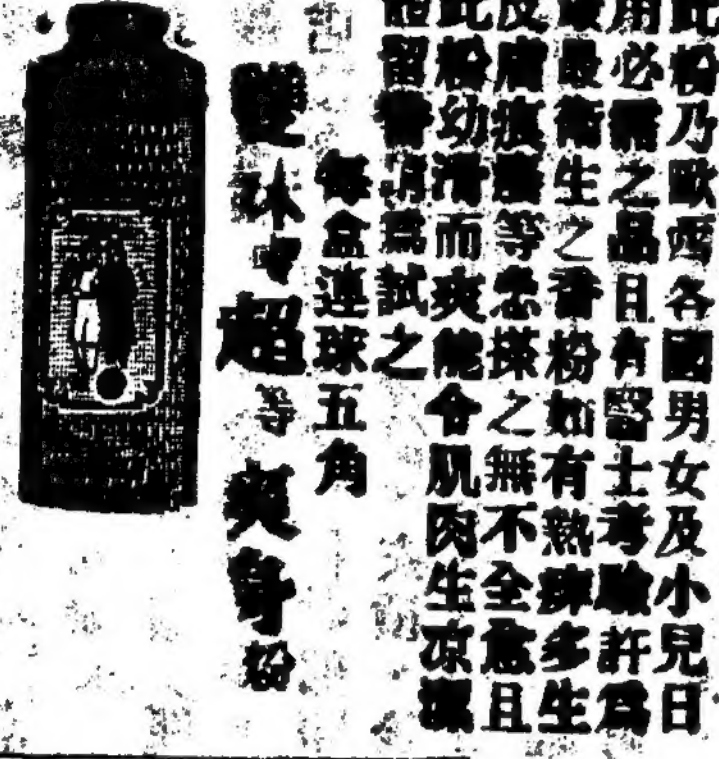 此粉乃歐西各國男女及小兒日
用必需之品且有醫士考驗許爲
最衛生之香粉如有熱痱多生
皮膚痕癢等患搽之無不全愈且
此粉幼滑而爽能令肌肉生凉
留香請爲試之
每盒連球五角
雙妹嘜超等爽身粉